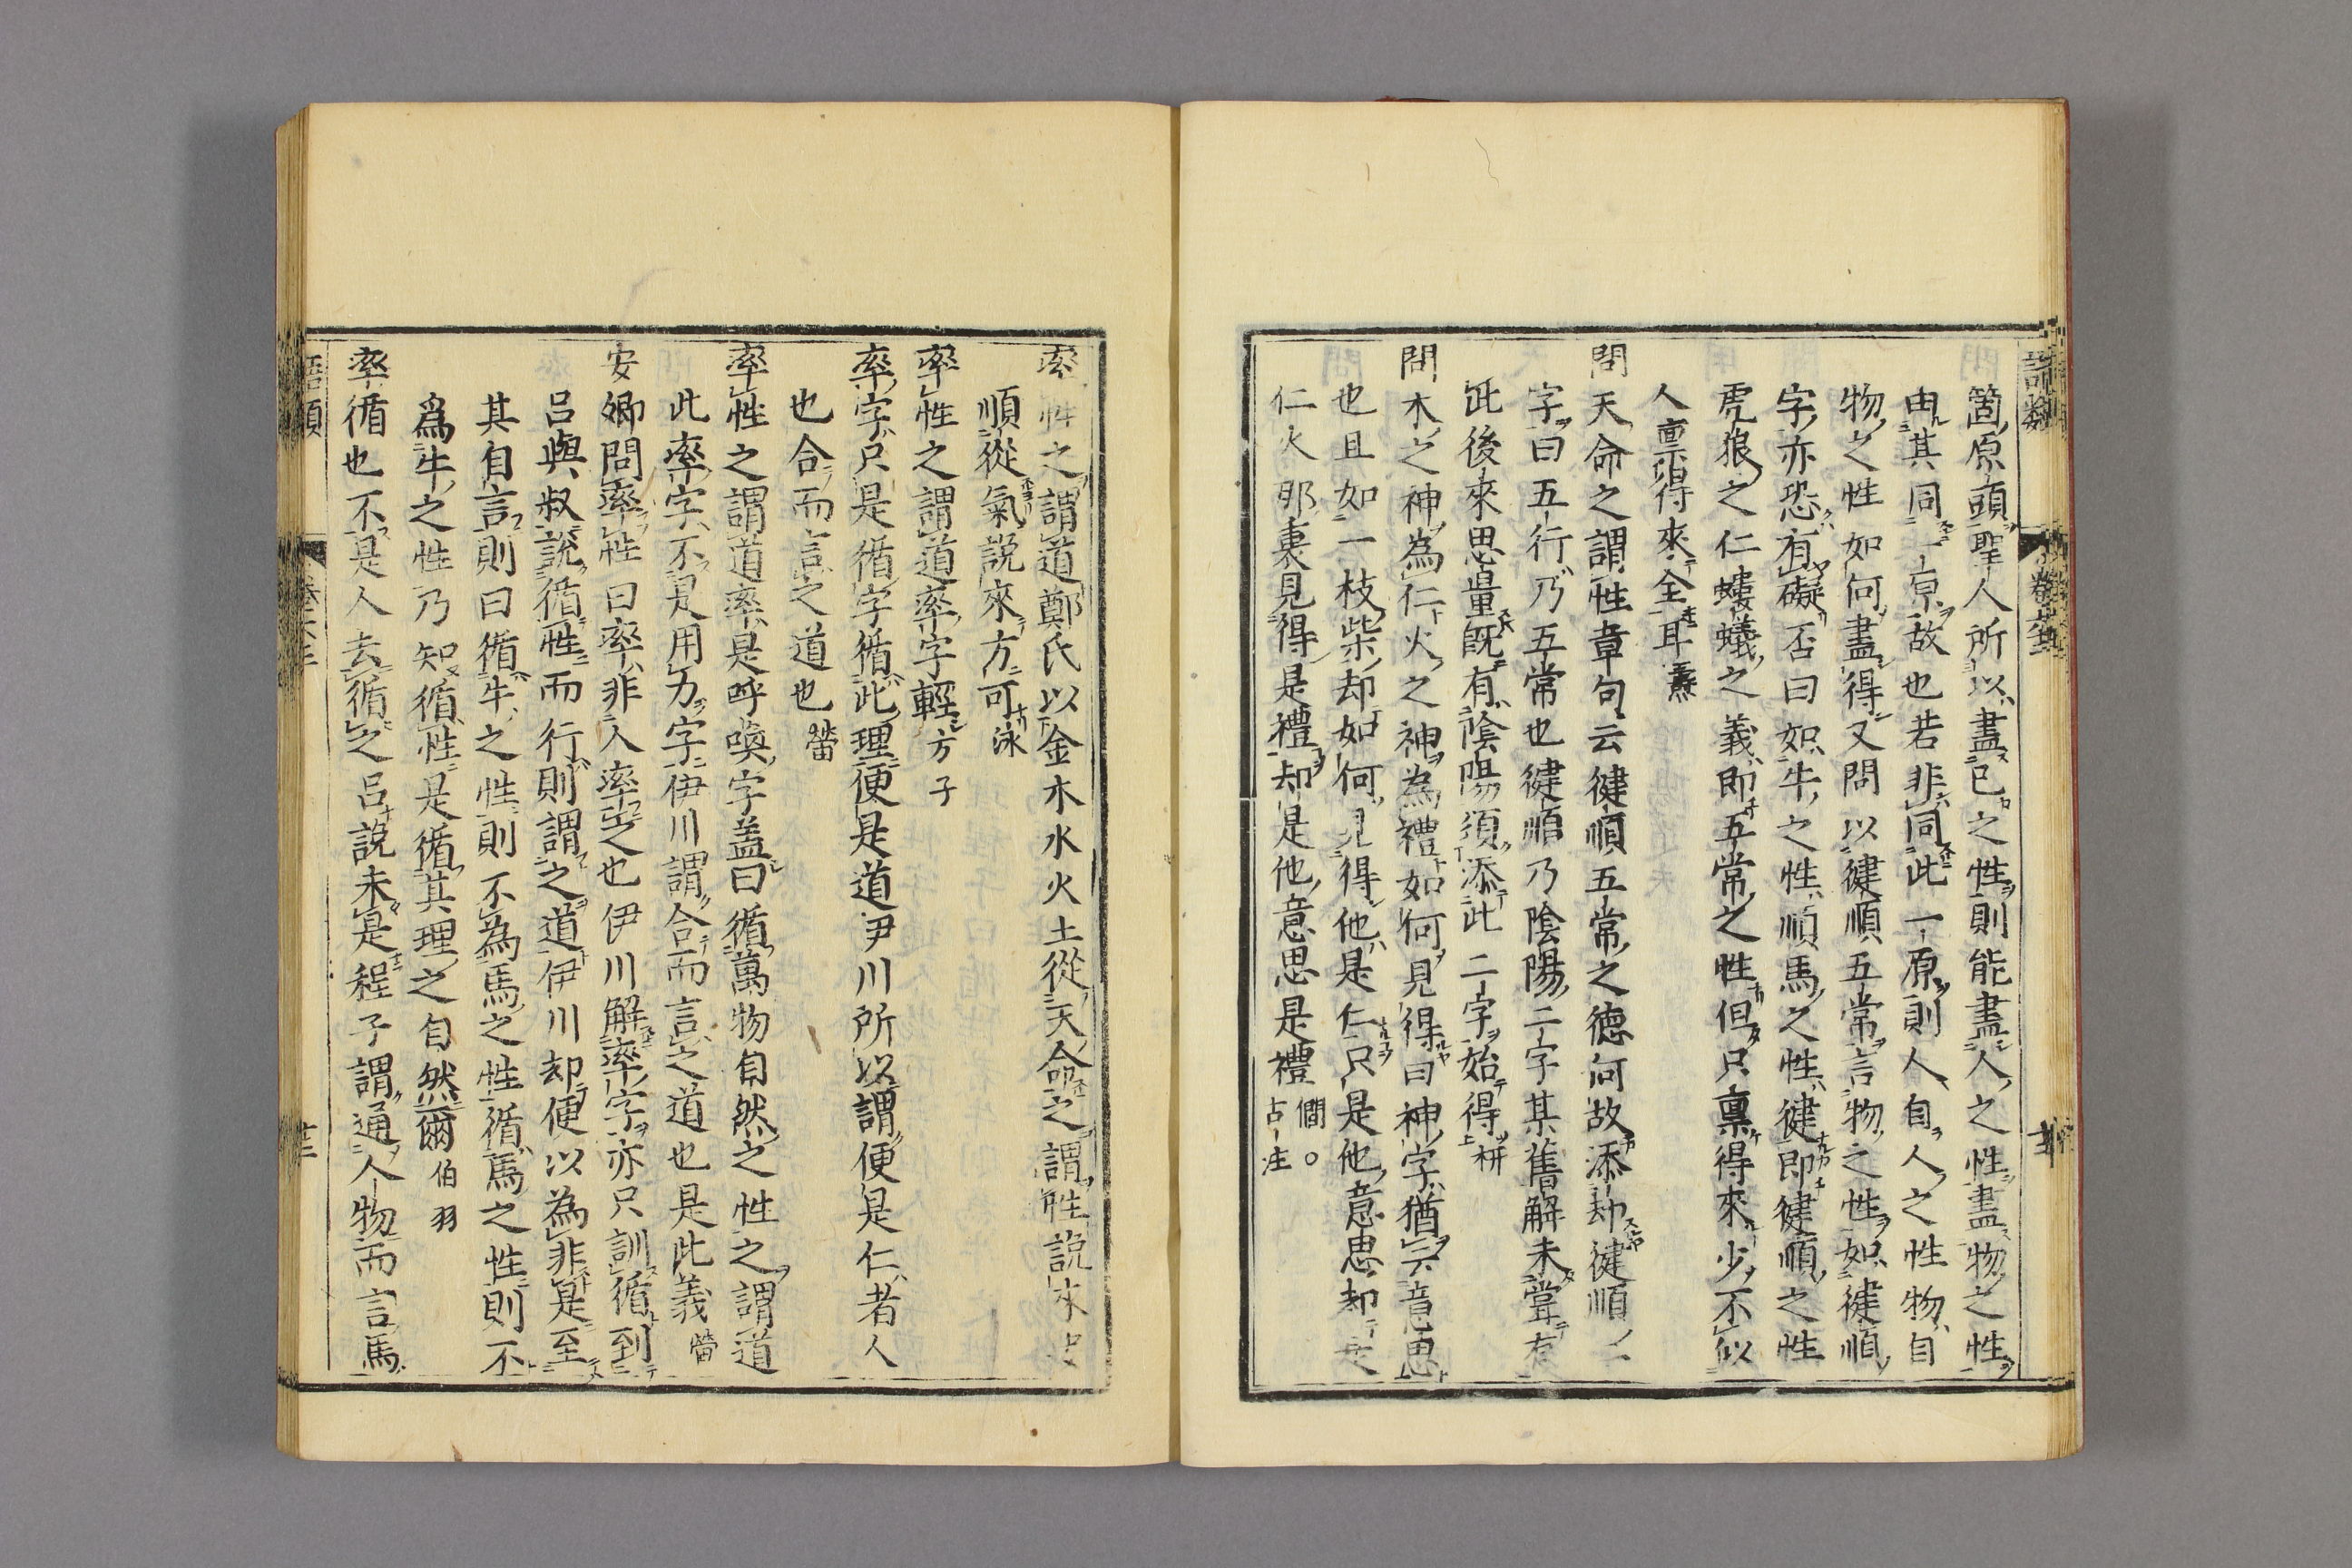 箇原頭聖人所以盡己之性則能盡人之性盡物之性
由其同一原故也若非同此一原則人自人之性物自
物之性如何盡得又問以健順五常言物之性如健順
字亦恐有礙否曰如牛之性順馬之性健即健順之性
虎狼之仁螻蟻之義即五常之性但只稟得來少不似
人稟得來全耳燾
問天命之謂性章句云健順五常之德何故添却健順二
字曰五行乃五常也健順乃陰陽二字某舊解未嘗有
此後來思量既有陰陽須添此二字始得枅
問木之神為仁火之神為禮如何見得曰神字猶云意思
也且如一枝柴却如何見得他是仁只是他意思却是
仁火那裏見得是禮却是他意思是禮僩○古注
率性之謂道鄭氏以金木水火土從天命之謂性說來
順從氣說來方可泳
率性之謂道率字輕方子
率字只是循字循此理便是道伊川所以謂便是仁者人
也合而言之道也㽦
率性之謂道率是呼喚字蓋曰循萬物自然之性之謂道
此率字不是用力字伊川謂合而言之道也是此義㽦
安卿問率性曰率非人率之也伊川解率字亦只訓循到
呂與叔說循性而行則謂之道伊川却便以為非是至
其自言則曰循牛之性則不為馬之性循馬之性則不
爲牛之性乃知循性是循其理之自然爾伯羽
率循也不是人去循之呂說未是程子謂通人物而言馬
語類